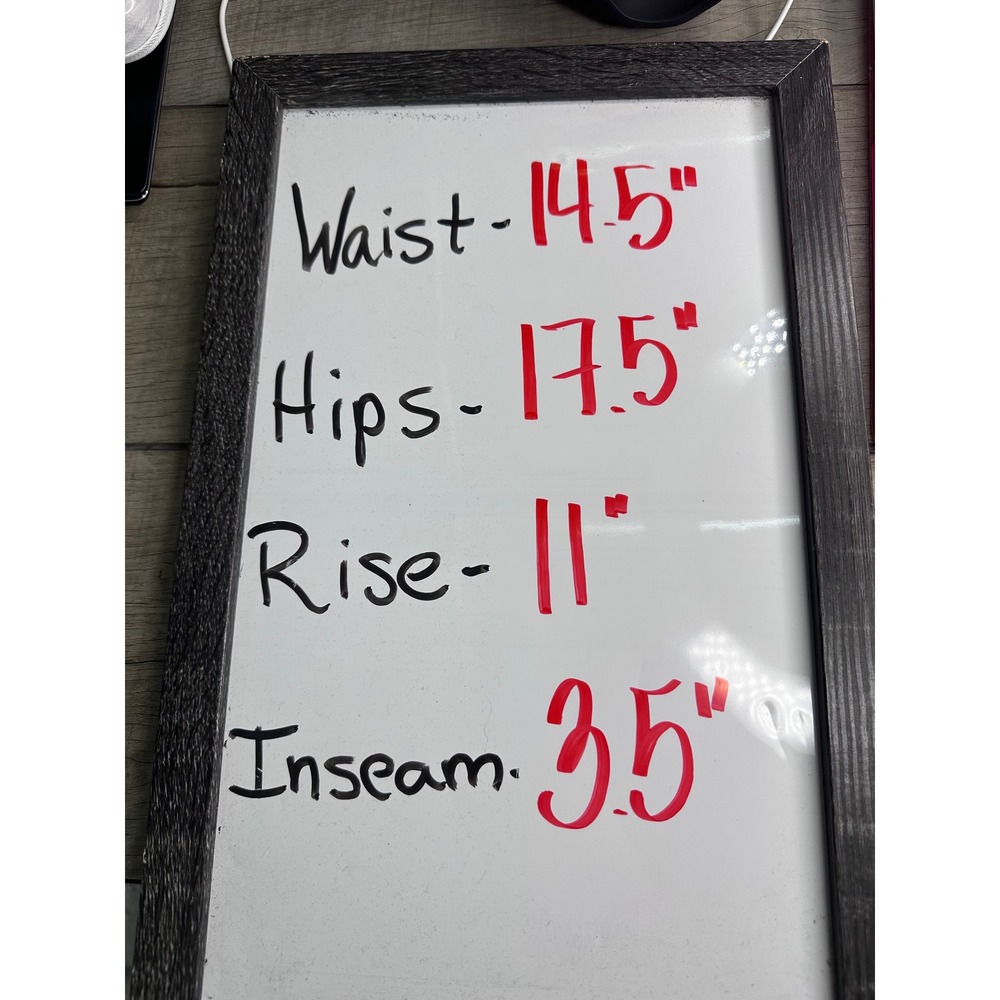 Waist - 14.5"
Hips - 17.5"
Rise - 11"
Inseam. 3.5"